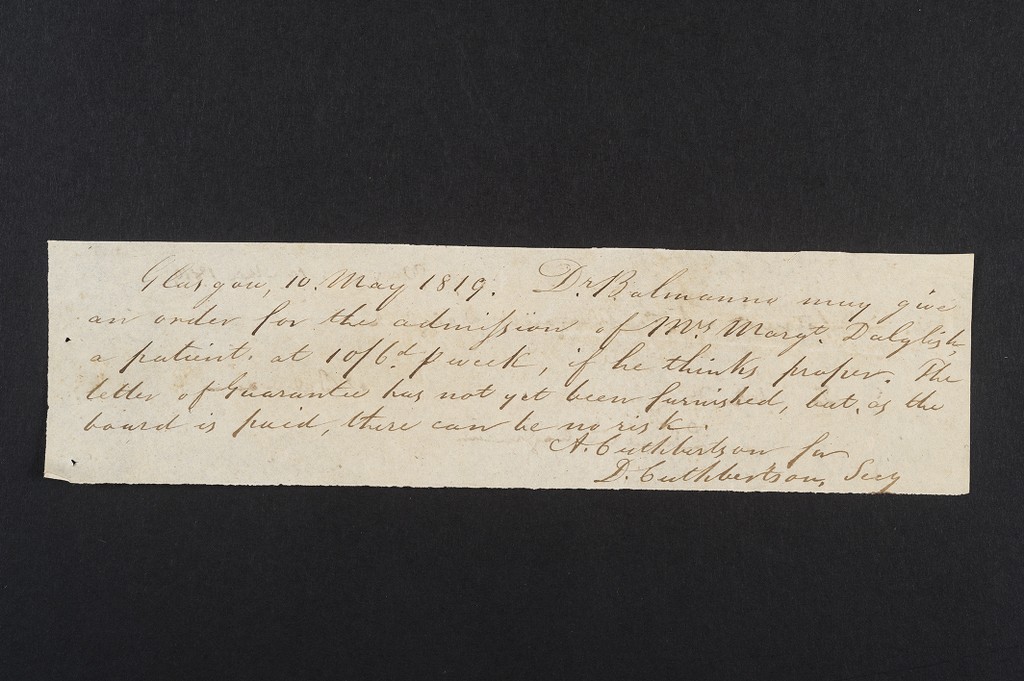 Glasgow, 10. May 1819. Dr Balmanno may give
an order for the admiſsion of Mrs Margt. Dalglish,
a patient. at 10/6d. p week, if he thinks proper. The
letter of Guarantee has not yet been furnished, but, as the
board is paid, there can be no risk.
A. Cuthbertson for
D. Cuthbertson, Secy